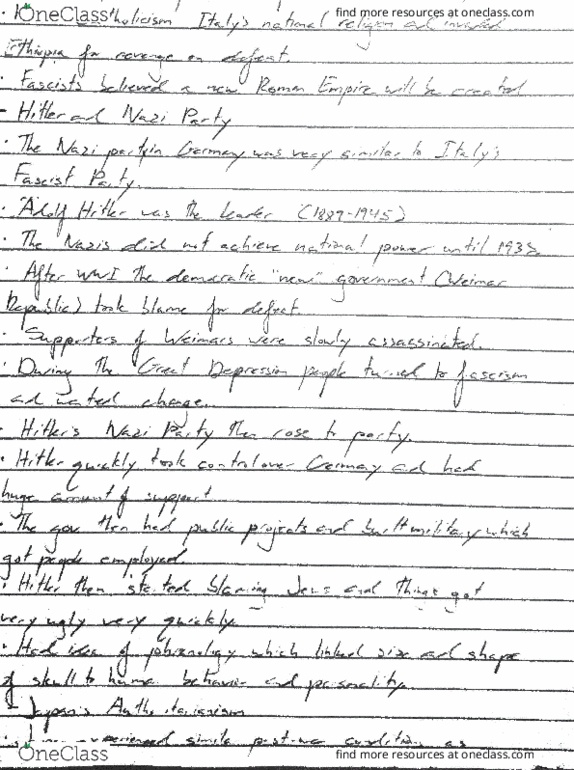 OneClass find more resources at oneclass.com
Catholicism Italy's national religion and invaded
Ethiopia for revenge on defeat.
· Fascists believed a new Roman Empire will be created
- Hitler and Nazi Party
· The Nazi party in Germany was very similar to Italy's
Fascist Party.
· Adolf Hitler was the leader (1889-1945)
· The Nazis did not achieve national power until 1933.
· After WWI the democratic "new" government (Weimar
Republic) took blame for defeat.
· Supporters of Weimars were slowly assassinated.
· During the Great Depression people turned to fascism
and wanted change.
· Hitler's Nazi Party then rose to party.
· Hitler quickly took control over Germany and had
huge amount of support.
· The gov then had public projects and built military which
got people employed.
· Hitler then started blaming Jews and things got
very ugly very quickly.
· Had idea of phrenology which linked size and shape
of skull to human behavior and personality.
- Japan's Authoritarianism
experienced similar post-war conditions as
OneClass find more resources at oneclass.com